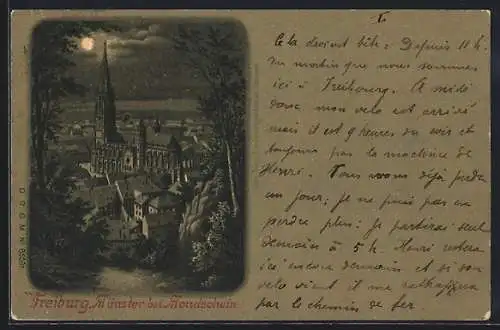 I.
Cela devient bête : Depuis 11 h.
du matin que nous sommes
ici à Freibourg. A midi
donc mon velo est arrivé
mais il est 9 heures du soir et
toujours pas la machine de
Henri. Nous avons déjà perdu
un jour ; je ne puis pas en
perdre plus ; je partirai seul
demain à 5 h. Henri restera
ici encore demain et si son
velo vient il me rattrapera
par le chemin de fer.
Freiburg, Münster bei Mondschein
D. R. G. M. N°